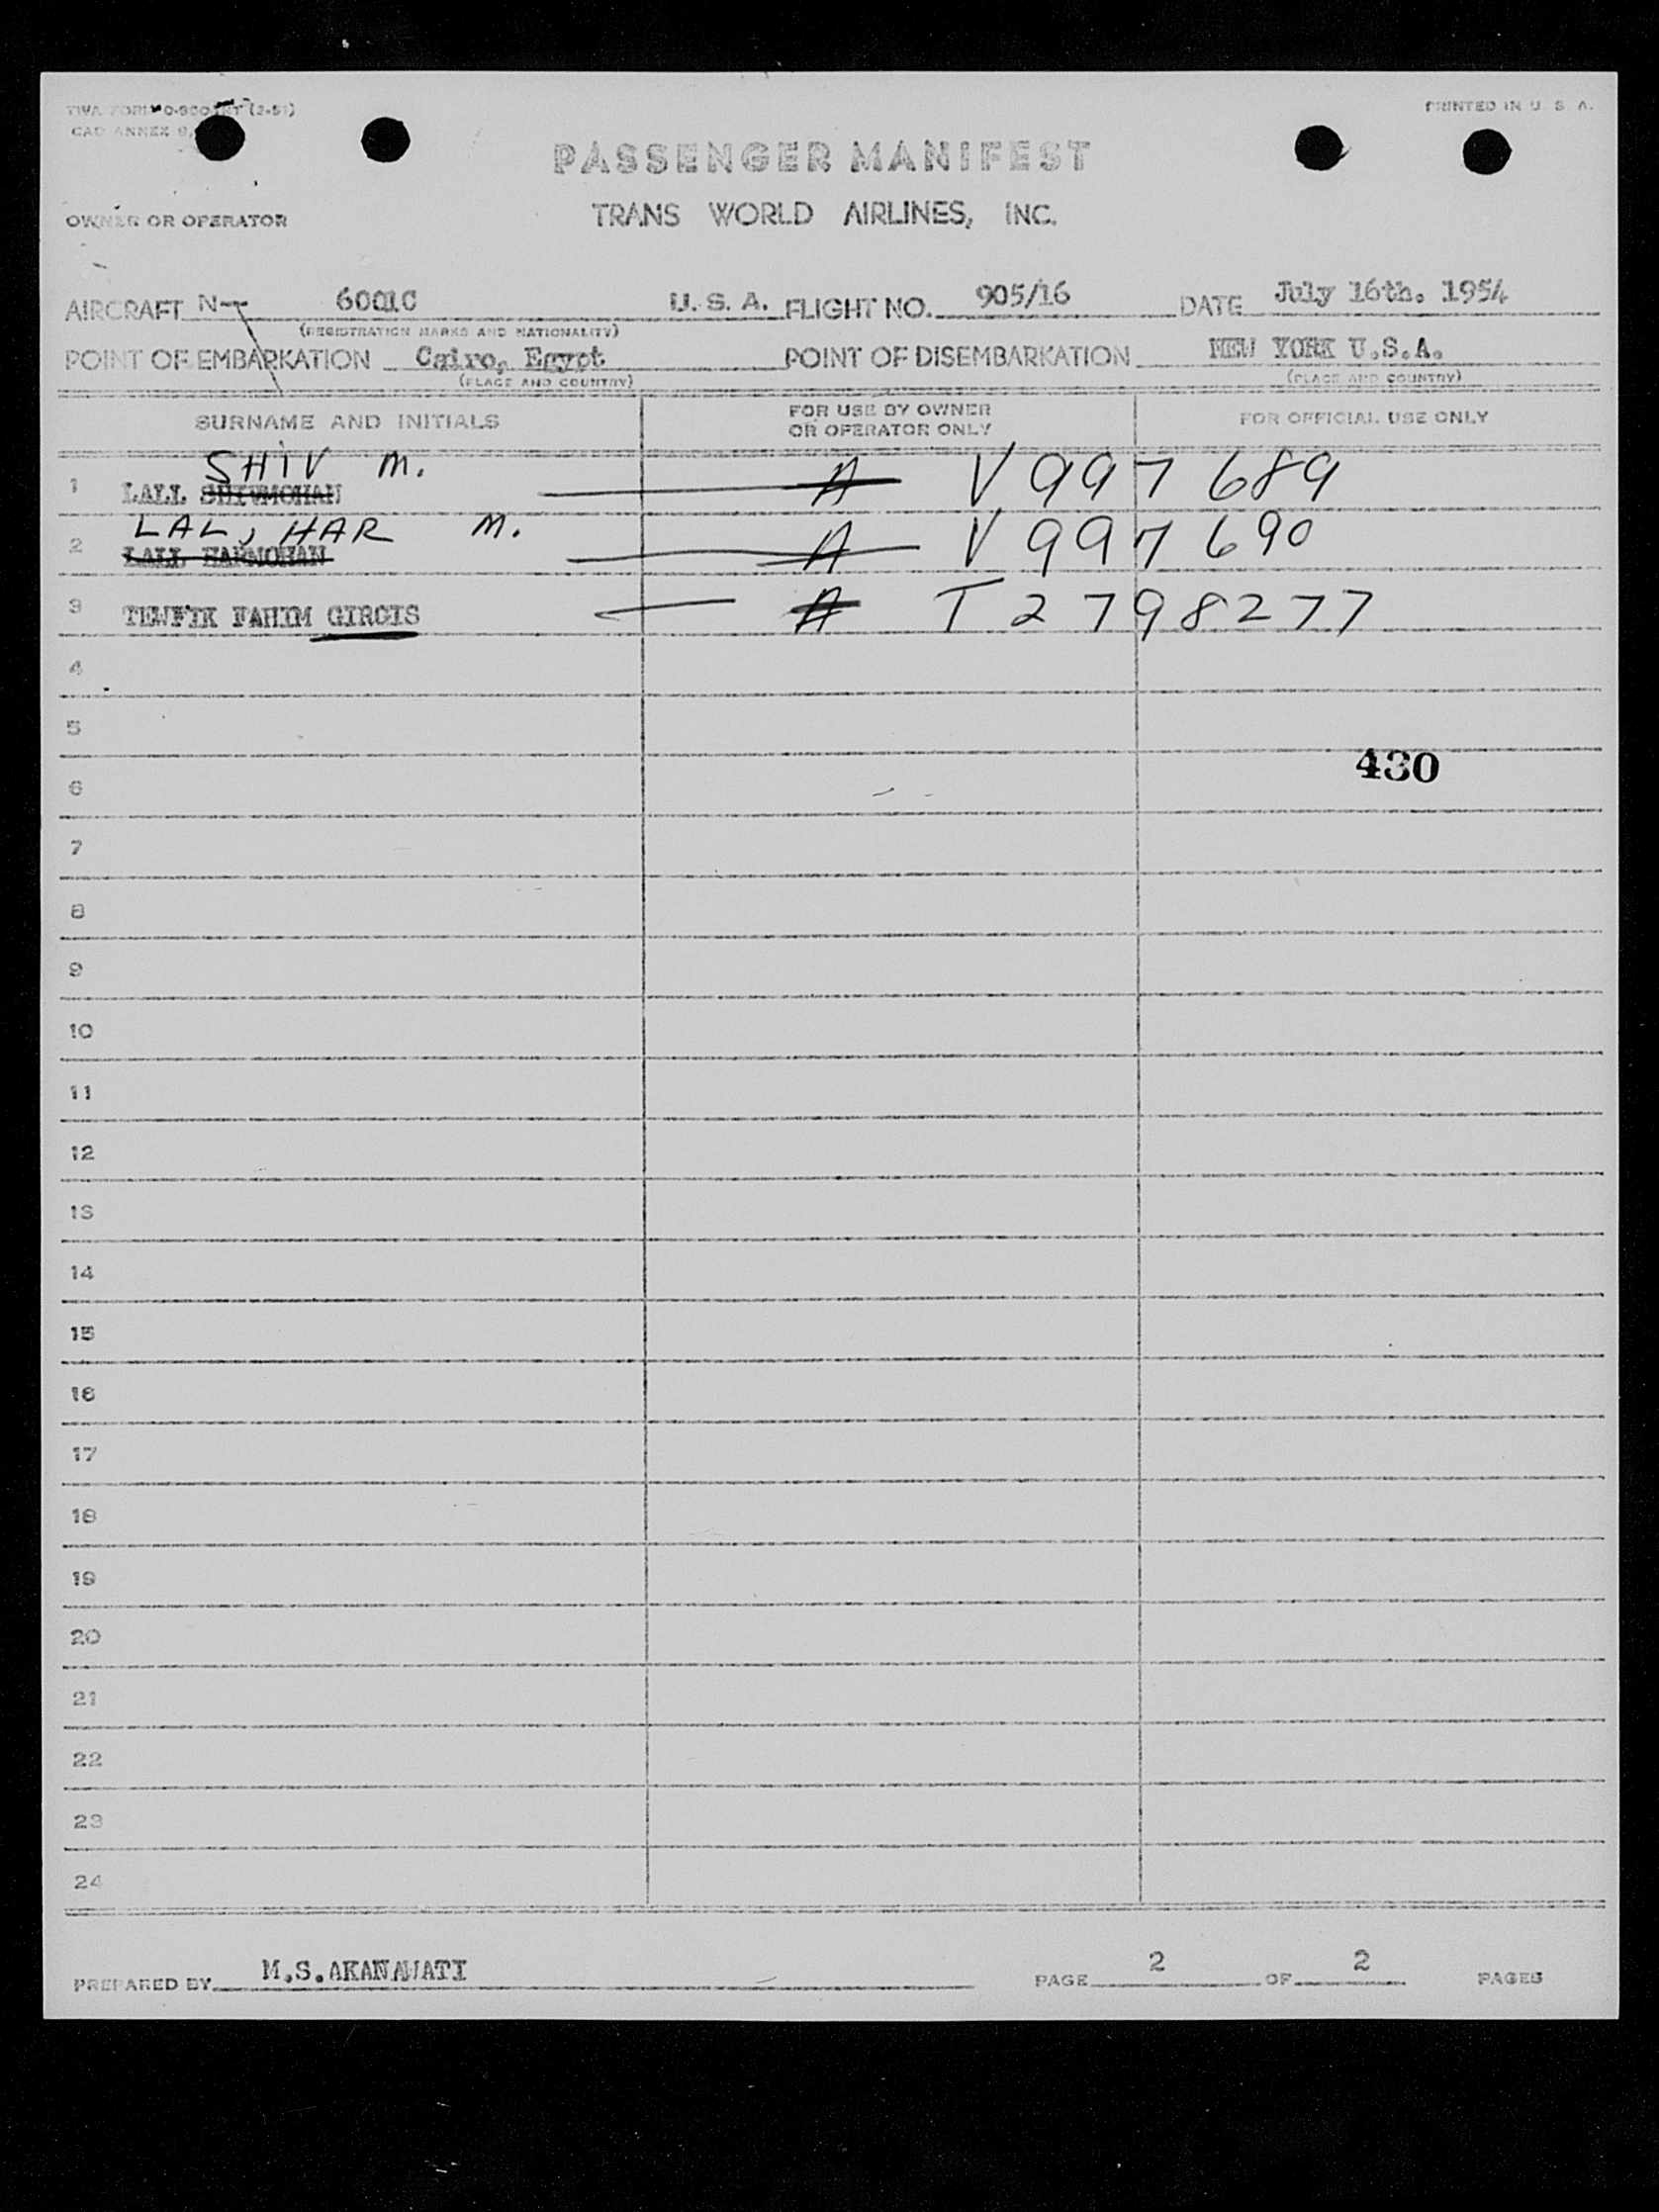 PRINTED IN U. S. A.
PASSENGER MANIFEST
OWNER OR OPERATOR
TRANS WORLD AIRLINES, INC.
AIRCRAFT N- 6001C U. S. A. FLIGHT NO. 905/16 DATE July 16th. 1954
(REGISTRATION MARKS AND NATIONALITY)
POINT OF EMBARKATION Cairo, Egypt POINT OF DISEMBARKATION NEW YORK U.S.A.
(PLACE AND COUNTRY) (PLACE AND COUNTRY)
SURNAME AND INITIALS FOR USE BY OWNER OR OPERATOR ONLY FOR OFFICIAL USE ONLY
SHIV M.
1 LALL SHIVMOHAN A V997689
LAL, HAR M.
2 LALL HARMOHAN A V997690
3 TEWFIK FAHIM GIRGIS A T2798277
4
5
430
6
7
8
9
10
11
12
13
14
15
16
17
18
19
20
21
22
23
24
PREPARED BY M.S. PAGE 2 OF 2 PAGES